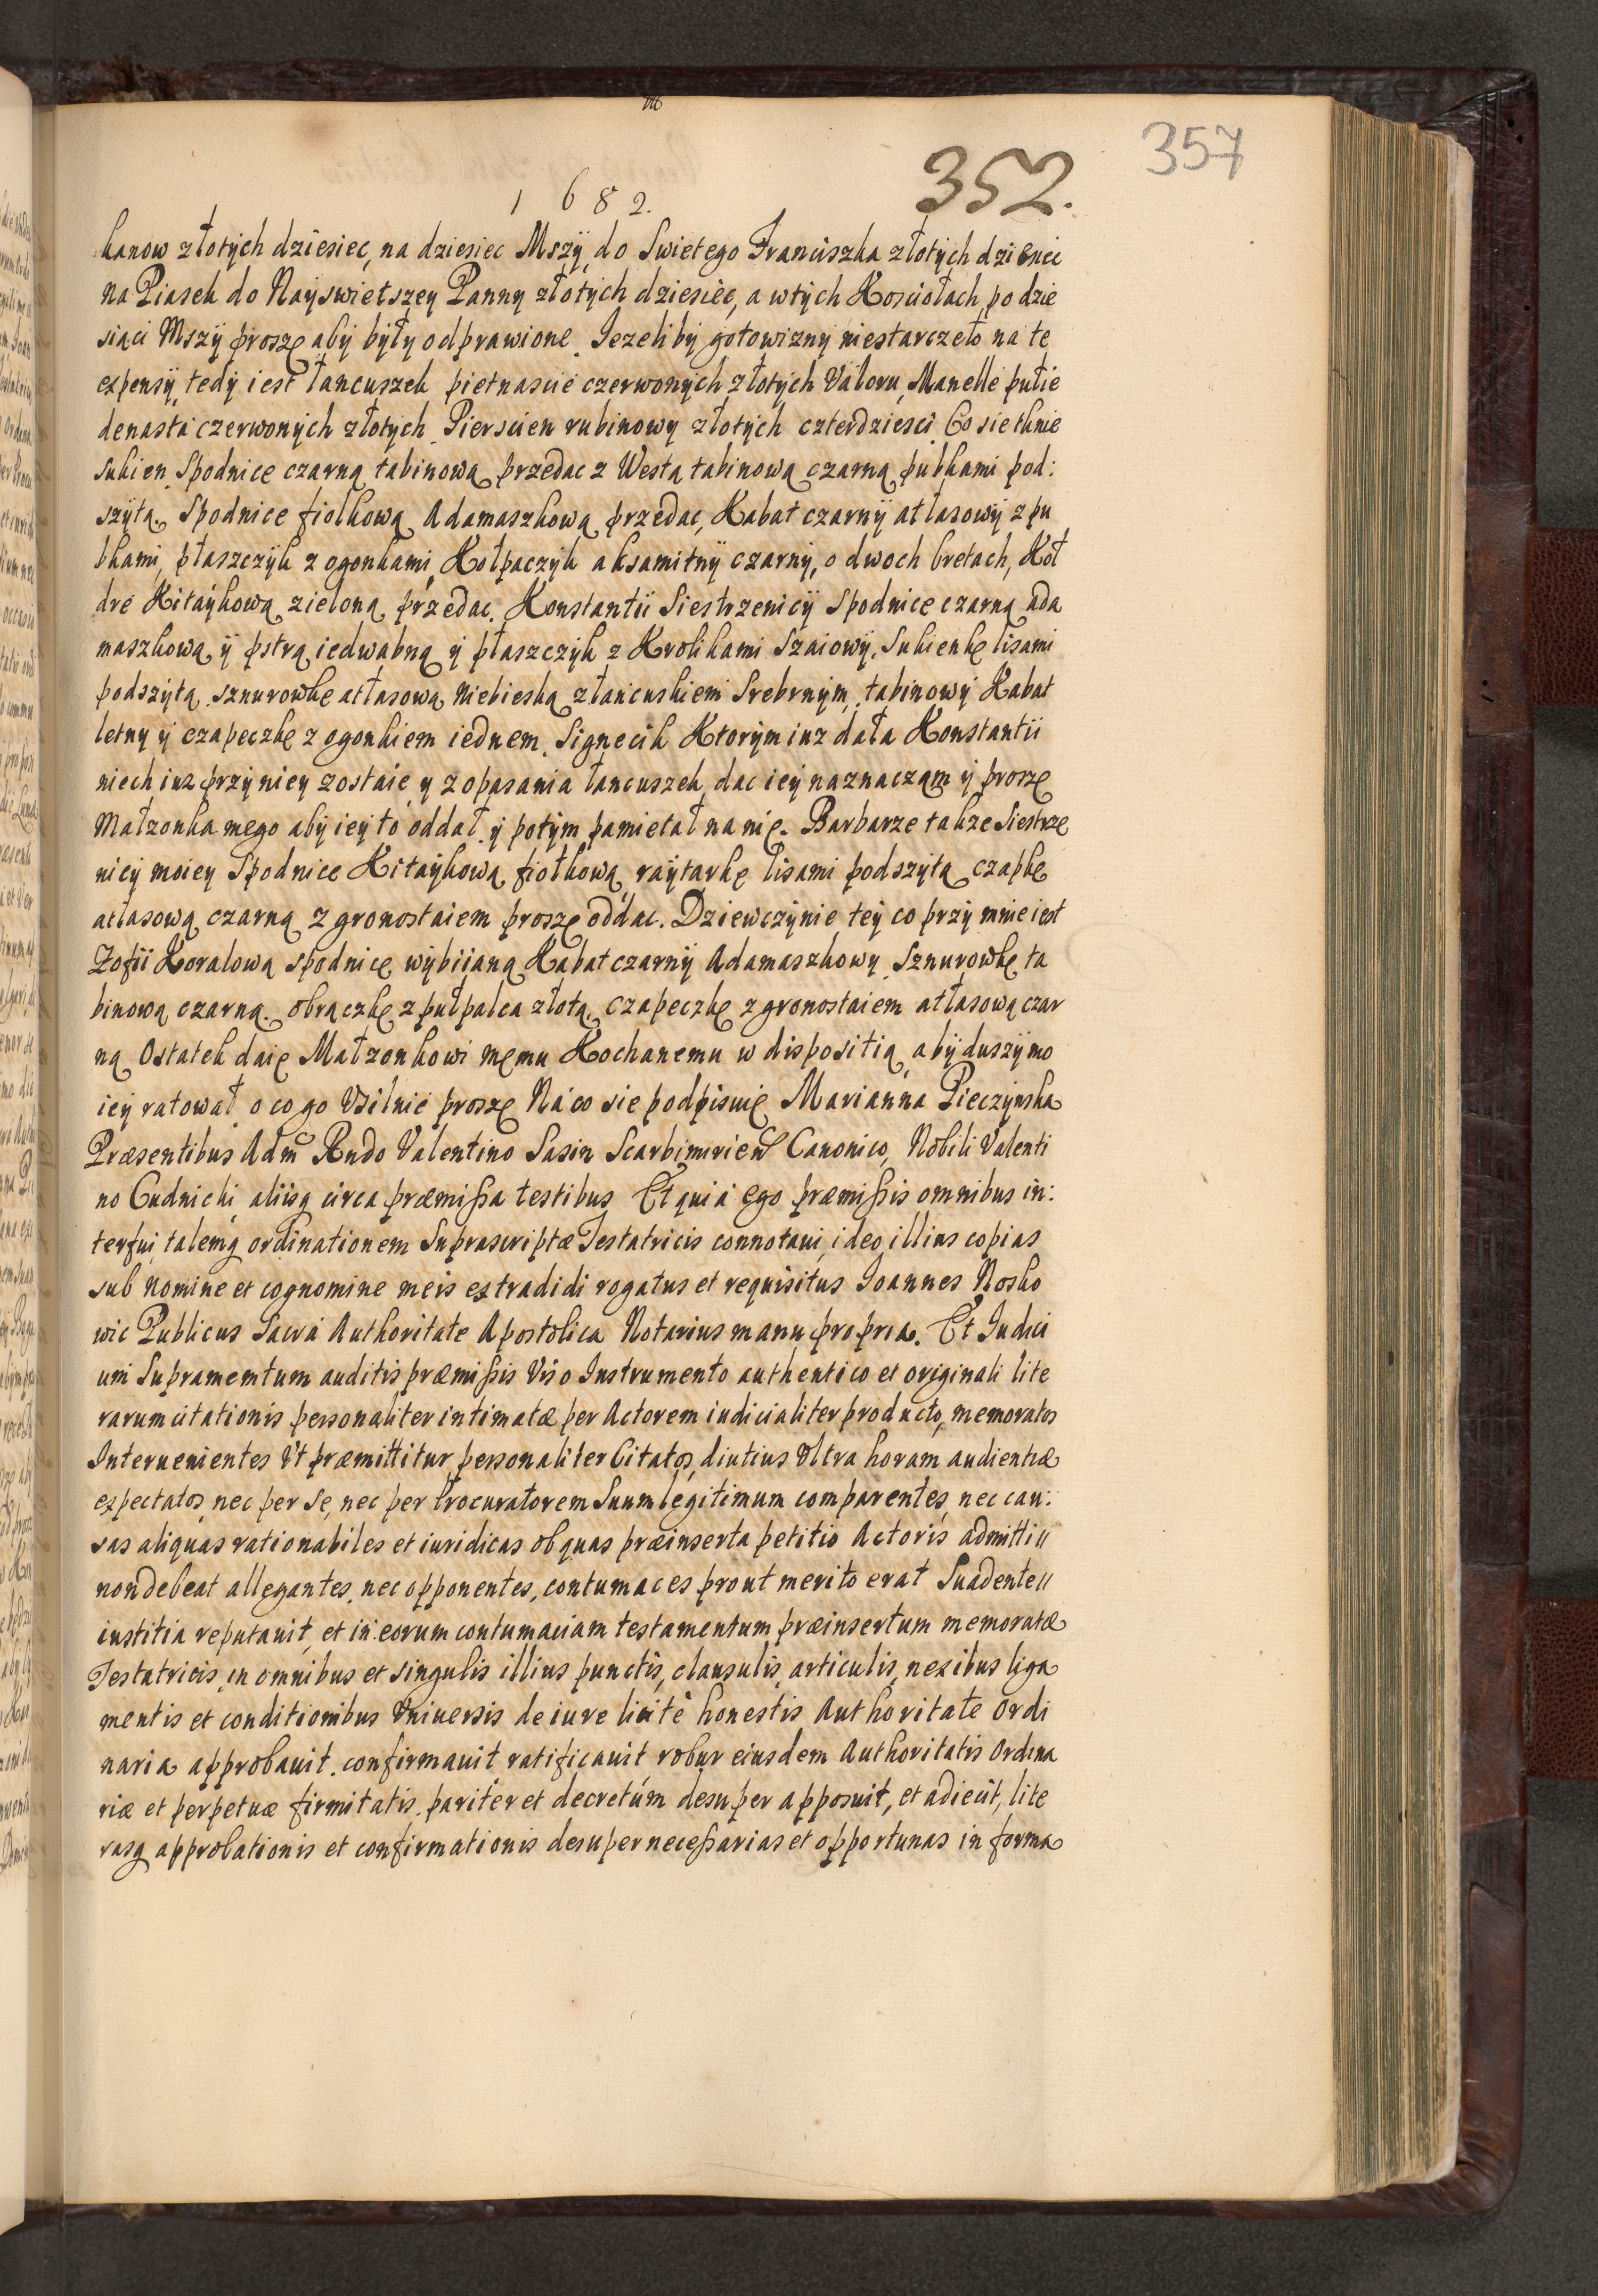 1682.
352.
357
kanow złotych dziesiec, na dziesiec Mszÿ, do Swietego Franciszka złotÿch dziesiec
na Piasek do Naÿswietszey Panny złotÿch dziesiec, a wtÿch Kosciołach, po dzie
siąci Mszÿ proszę abÿ bÿły odprawione. Iezeliby gotowizny niestarczeło na te
expensÿ, tedÿ iest łancuszek pietnascie czerwonÿch złotych Valoru, Manelle pułie
denasta czerwonÿch złotÿch, Pierscien rubinowy złotych czterdziesci. Co sie tknie
Sukien, Spodnice czarną tabinową przedac z Westą tabinową czarną pupkami pod:
szÿtą. Spodnice fiolkową Adamaszkową przedac, Kabat czarnÿ atłasowÿ z pu
pkami, płaszczÿk z ogonkami, Kołpaczÿk aksamitnÿ czarny, o dwoch bretach, Koł
dre Kitaÿkową zieloną przedac. Konstantii Siestrzenicÿ Spodnice czarną ada
maszkową, ÿ pstrą iedwabną ÿ płaszczÿk z Krolikami Szaiowÿ, Sukienkę lisami
podszÿtą, sznurowke atłasową Niebieską złancuskiem Srebrnÿm, tabinowÿ Kabat
letny ÿ czapeczkę z ogonkiem iednem, Signecik Ktorÿm iuz dała Konstantii
niech iuz przÿ niey zostaie y z opasania łancuszek, dac ieÿ naznaczam ÿ proszę
Małzonka mego abÿ ieÿ to oddał ÿ potÿm pamietał na nię. Barbarze takze Siestrze
nicy moiey Spodnice Kitaÿkową fiołkową, raÿtarkę lisami podszÿtą czapkę
atłasową czarną z gronostaiem proszę oddac. Dziewczÿnie teÿ co przÿ mnie iest
Zofii Koralową spodnicę wÿbiianą Kabat czarnÿ Adamaszkowy Sznurowkę ta
binową czarną. obrączkę z pułpalca złotą, czapeczkę z gronostaiem atłasową czar
ną Ostatek daię Małzonkowi memu Kochanemu w dispositią, abÿ duszÿ mo
ieÿ ratował o co go Vsilnie proszę Na co sie podpisuię Marianna Pieczÿnska
Præsentibus Adm Rndo Valentino Sasin Scarbimirien Canonico, Nobili Valenti
no Cudnicki aliisq circa præmissa testibus Et quia ego præmissis omnibus in:
terfui talemq ordinationem Suprascriptæ Testatricis connotaui ideo illius copias
sub nomine et cognomine meis extradidi rogatus et requisitus Ioannes Nosko
wic Publicus Sacra Authoritate Apostolica Notarius manu propria. Et Iudici
um Supramemtum auditis præmissis Viso Instrumento authentico et originali lite
rarum citationis personaliter intimatæ per Actorem iudicialiter producto, memoratos
Interuenientes Vt præmittitur personaliter Citatos, diutius Vltra horam audientiæ
expectatos nec per se, nec per Procuratorem Suum legitimum comparentes nec cau:
sas aliquas rationabiles et iuridicas ob quas præinserta petitio Actoris admitti
non debeat allegantes, nec opponentes, contumaces prout merito erat Suadente
iustitia reputauit, et in eorum contumaciam testamentum præinsertum memoratæ
Testatricis in omnibus et singulis illius punctis, clausulis, articulis, nexibus liga
mentis et conditionibus Vniuersis de iure licite honestis Authoritate Ordi
naria approbauit, confirmauit ratificauit robur eiusdem Authoritatis Ordina
riæ et perpetuæ firmitatis pariter et decretum desuper apposuit, et adiecit, lite
rasq approbationis et confirmationis desuper necessarias et opportunas in forma